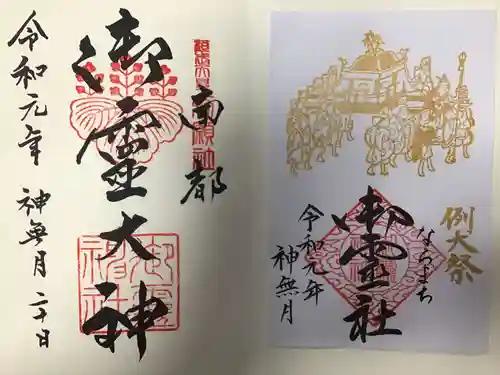 南都
御靈大神
令和元年 神無月 二十日
例大祭
ならまち
御靈社
令和元年
神無月